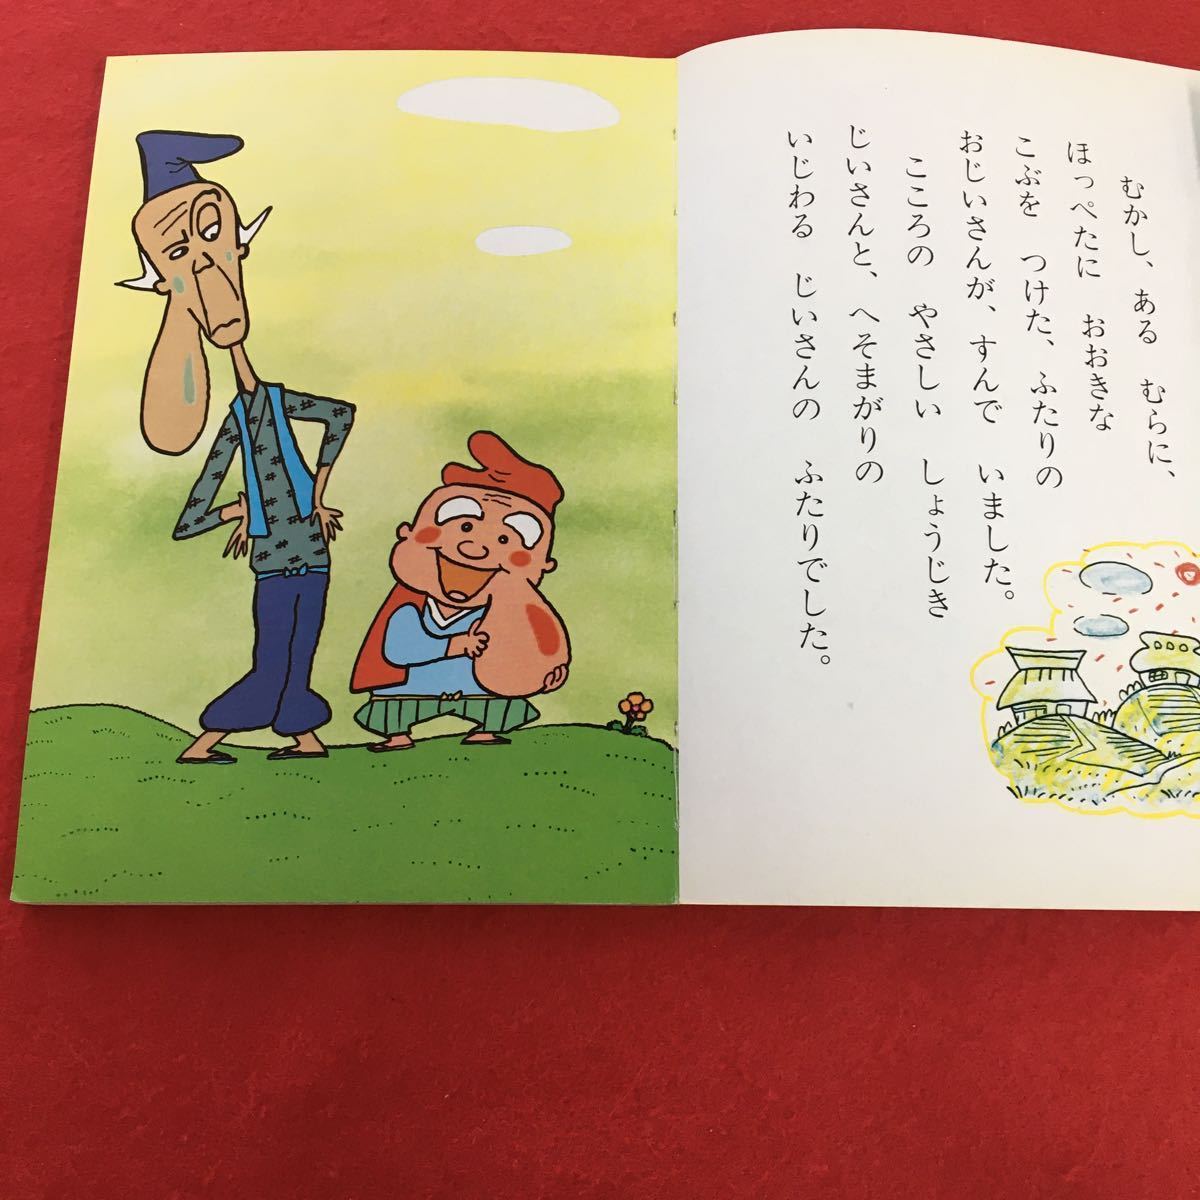 むかし、ある　むらに、
ほっぺたに　おおきな
こぶを　つけた、ふたりの
おじいさんが、すんで　いました。
こころの　やさしい　しょうじき
じいさんと、へそまがりの
いじわる　じいさんの　ふたりでした。